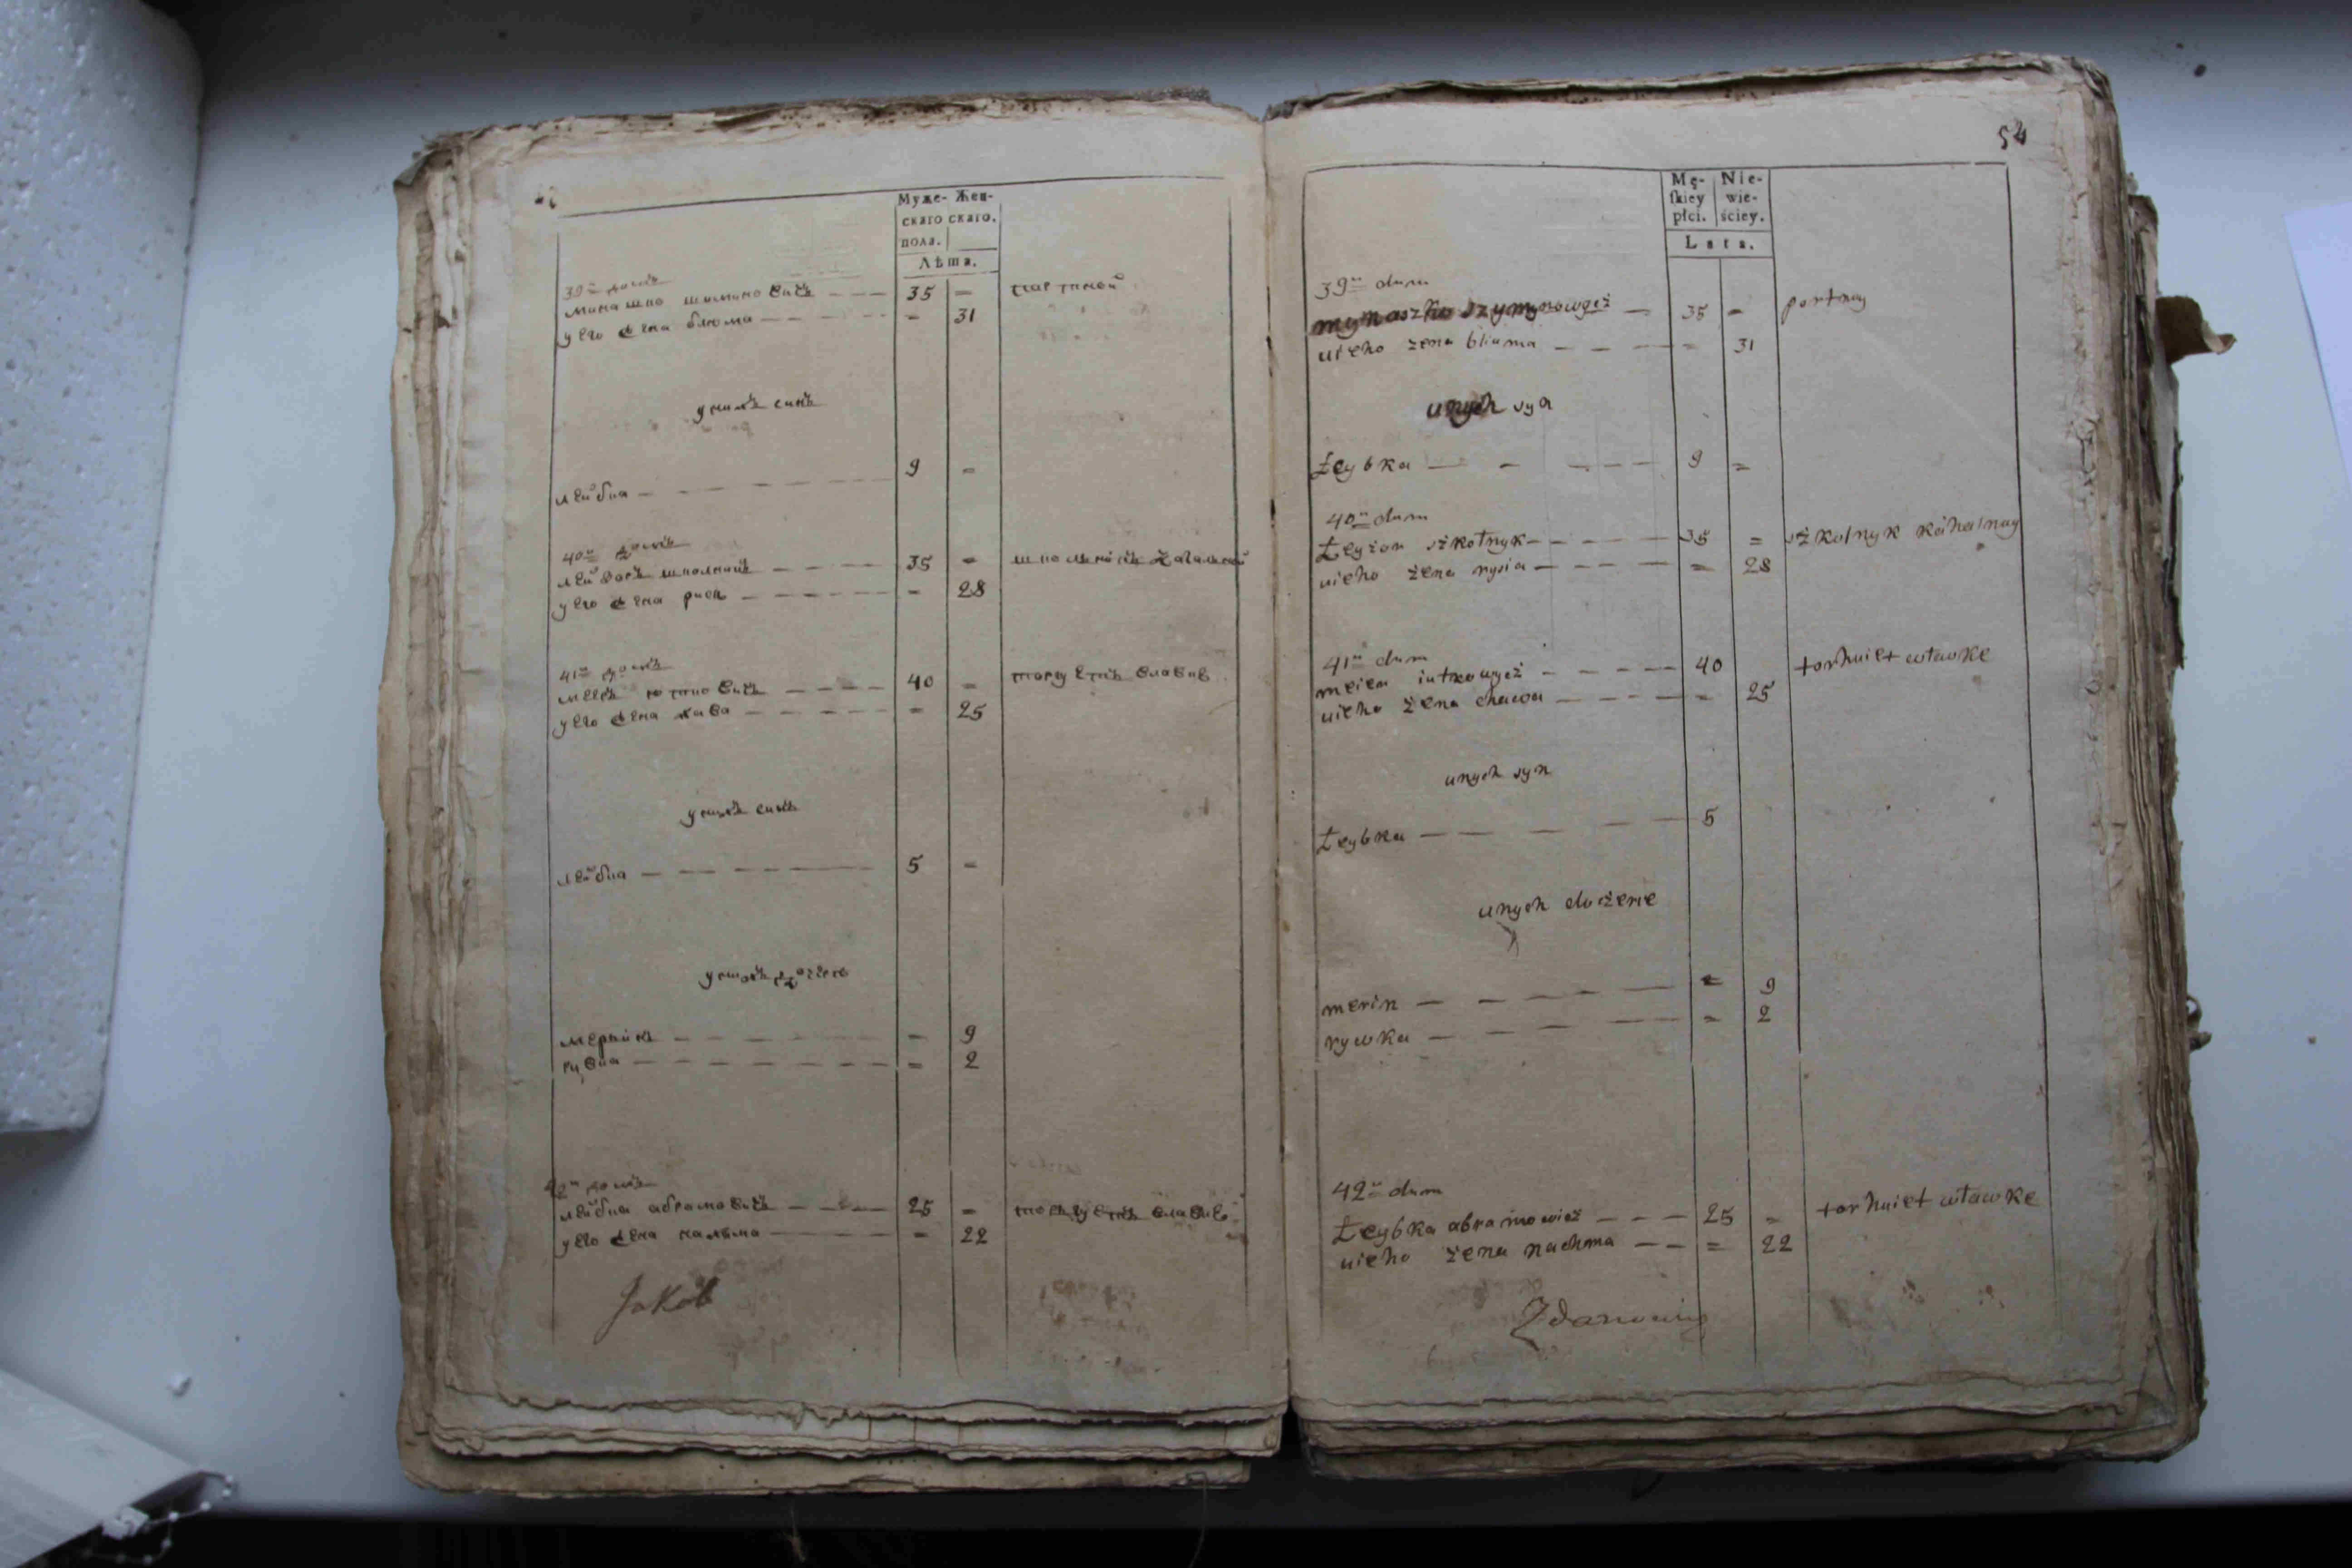 Муже- Жен-
скаго скаго.
пола.
Лѣта.
39й домъ
минашко шимановичъ — — — 35 = партной
у его жена блюма — — — = 31
у нихъ синъ
лейбка — — — 9 =
40й домъ
лейзоръ школникъ — — — 35 = школьникъ кагальной
у его жена рися — — — = 28
41й домъ
мееръ ютковичъ — — — 40 = торгуетъ влавке
у его жена хава — — — = 25
у нихъ синъ
лейбка — — — 5 =
у нихъ дочери
мерынъ — — — = 9
ривка — — — = 2
42й домъ
лейбка абрамовичъ — — — 25 = торгуетъ влавке
у его жена нахъма — — — = 22
Jakób
54
Mę- Nie-
ſkiey wie-
płci. ściey.
Lata.
39й dum
mynaszko szymynowycż — 35 = portnoy
uieho żena bliuma — — — = 31
unych syn
Łeybka — — — 9 =
40й dum
Łeyzor szkołnyk — — — 35 = szkolnyk kahalnoy
uieho żena rysia — — — = 28
41й dum
meier iutkowycż — — — 40 torhuiet włavke
uieho żena chawa — — — = 25
unych syn
Łeybka — — — 5
unych doczerie
merin — — — = 9
rywka — — — = 2
42й dum
Łeybka abramowicż — — — 25 = torhuiet włavke
uieho żena nachma — — = 22
Zdanowicz